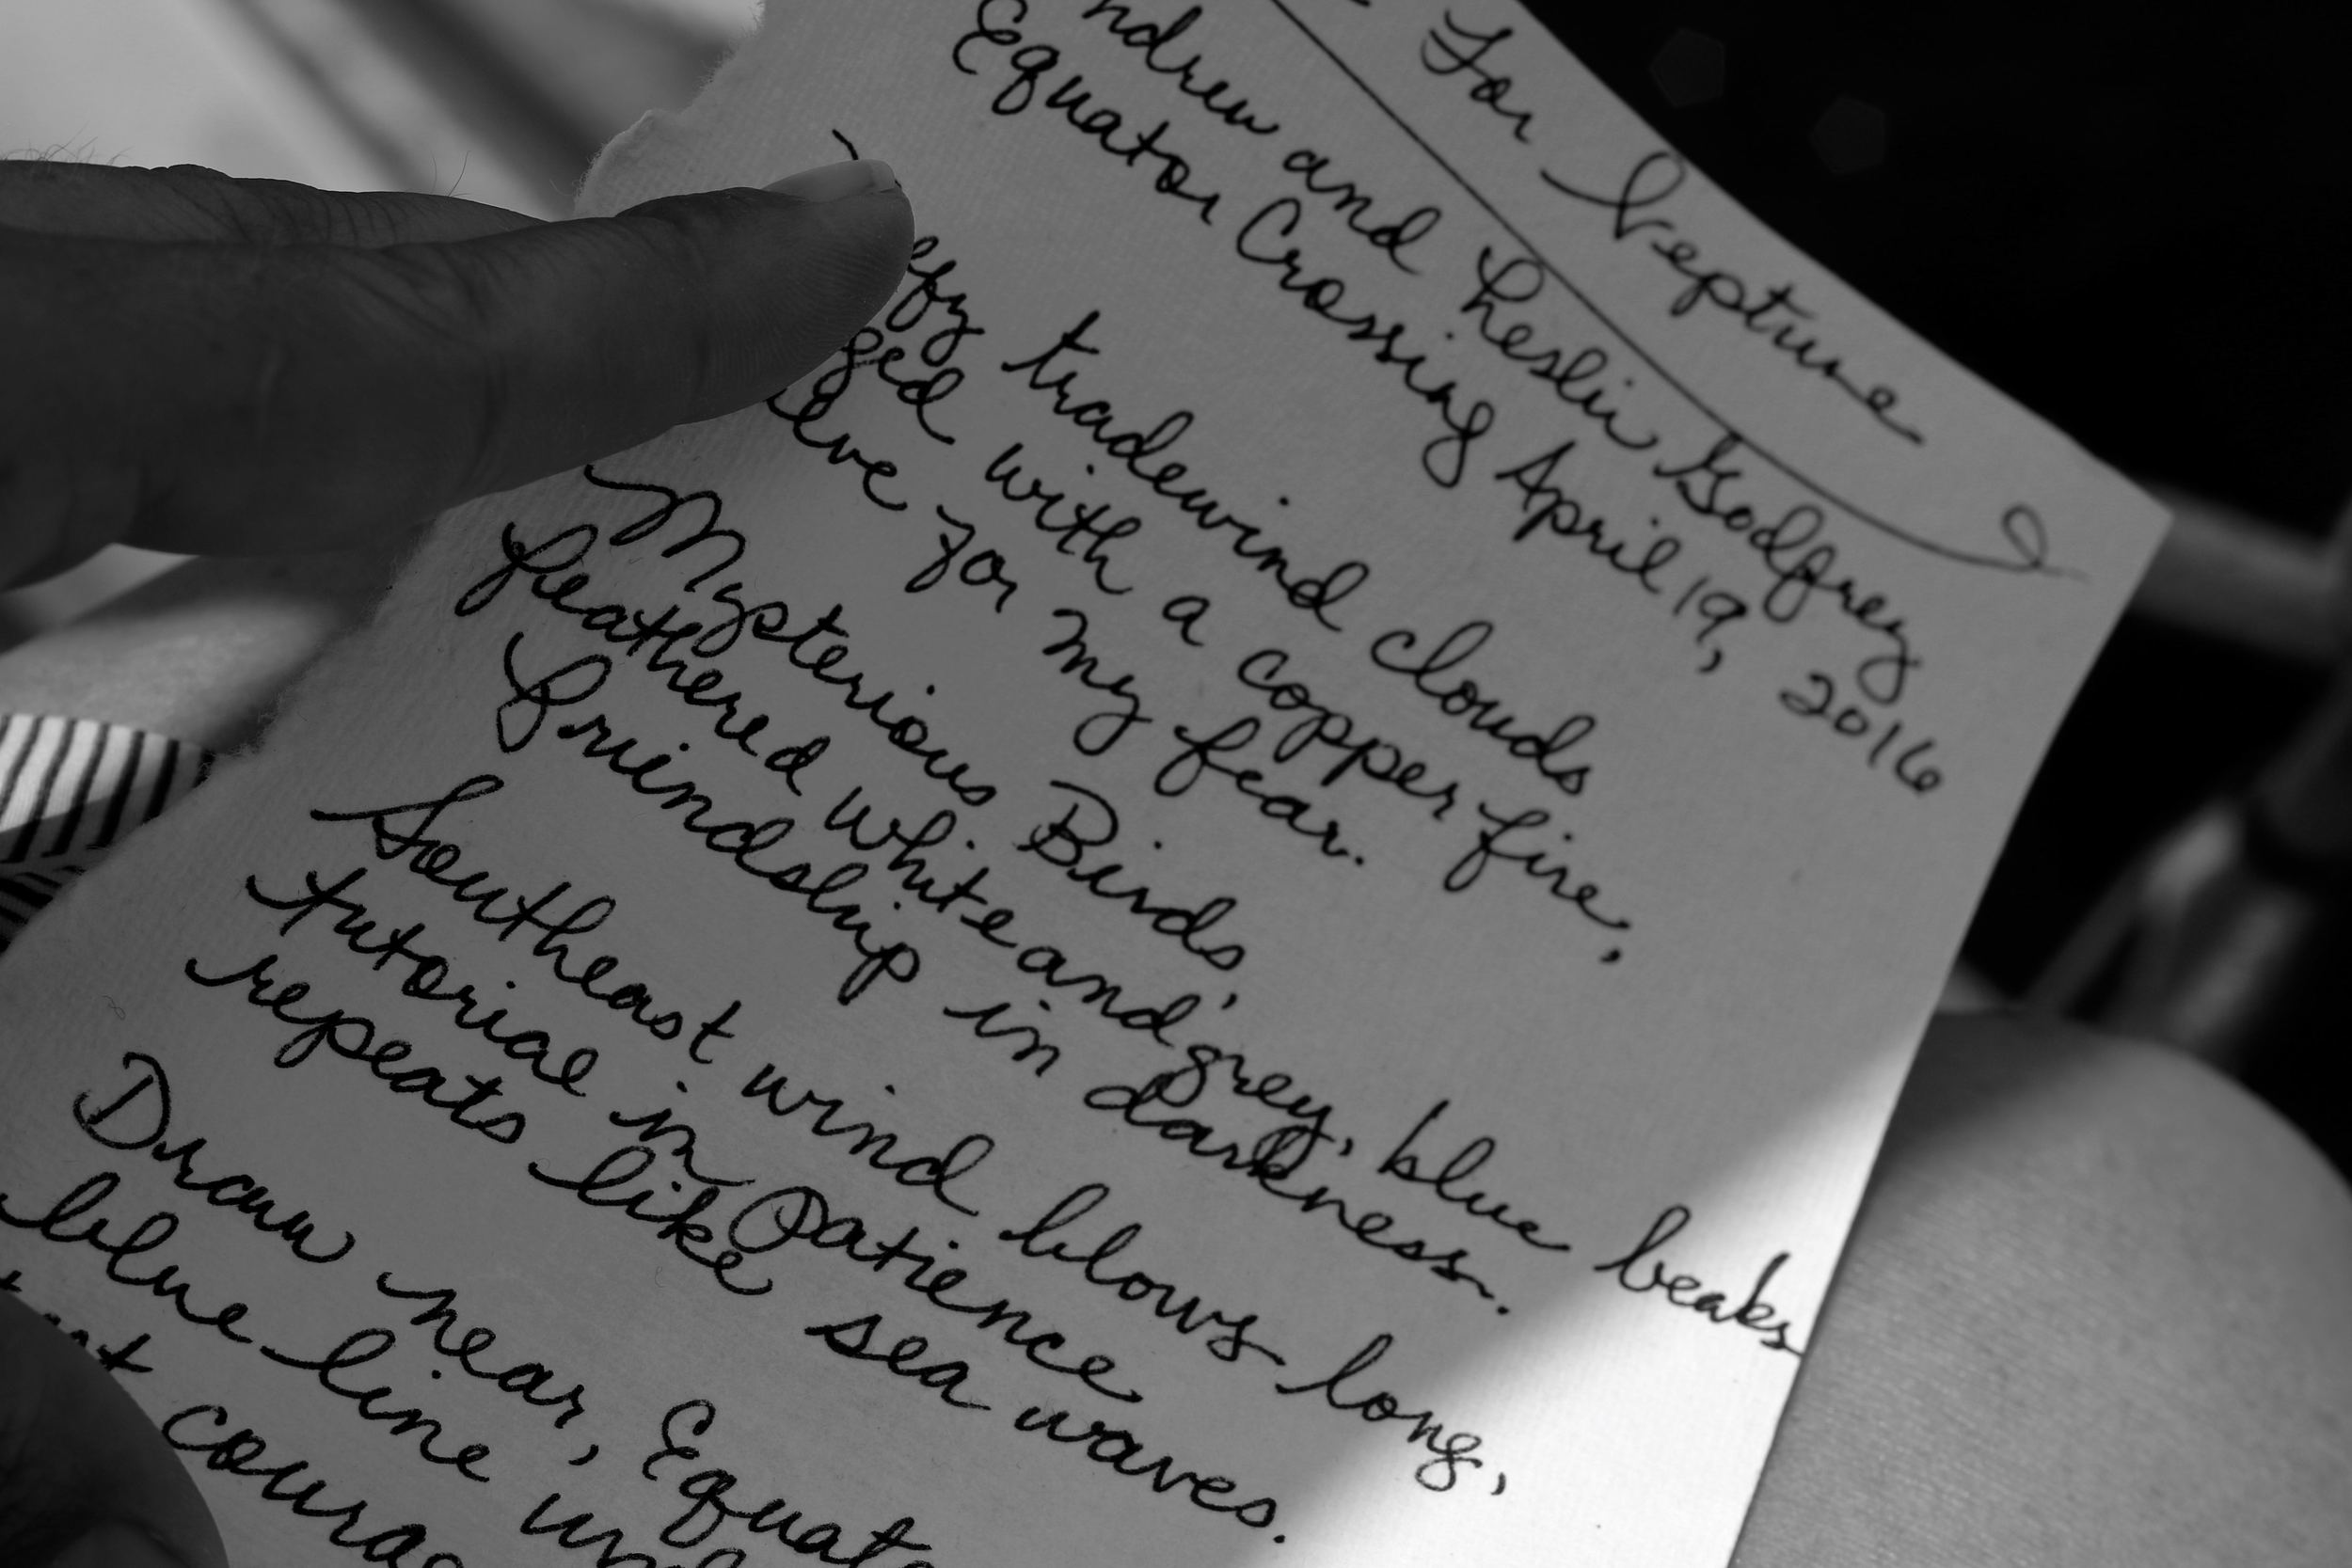 For Neptune
ndrew and Leslie Godfrey
Equator Crossing April 19, 2016
ffy tradewind clouds
ged with a copper fire,
lve for my fear.
Mysterious Birds,
feathered white and grey, blue beaks
friendship in darkness.
Southeast wind blows long,
tutorial in Patience
repeats like sea waves.
Draw near, Equat
blue line un
courag